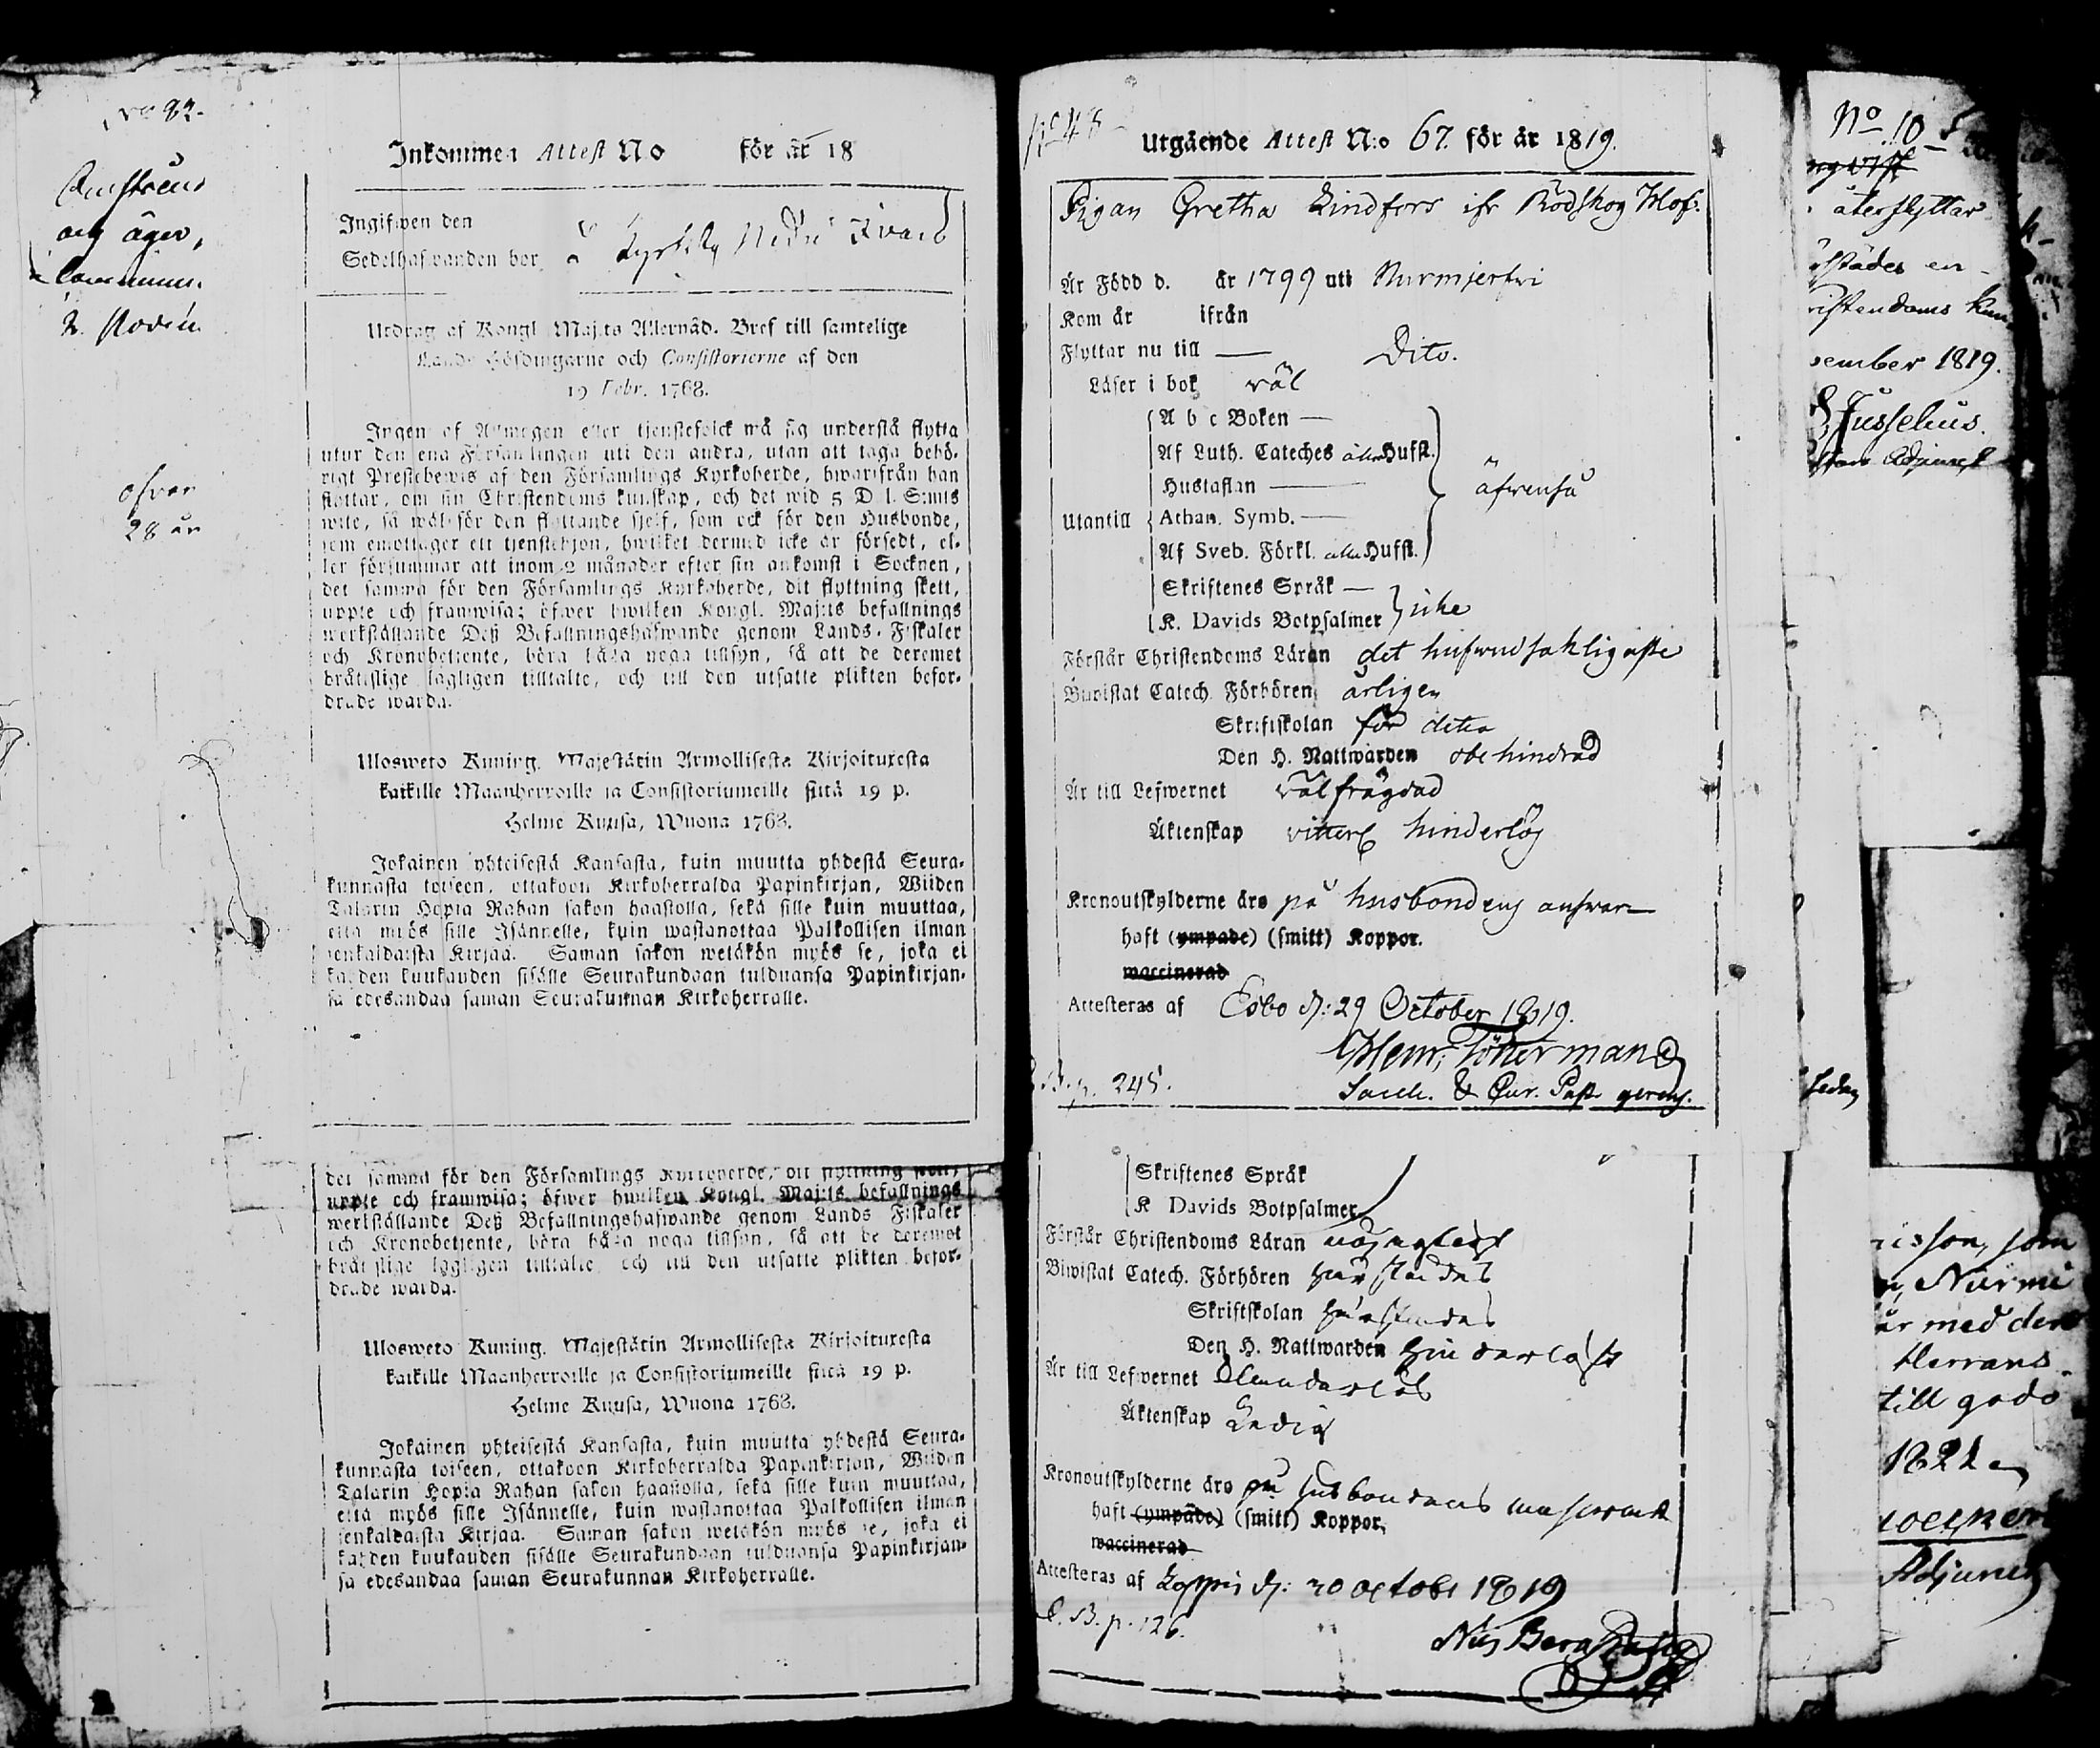 No 82.
aug äger,
ofvan
28 år
Inkommen Attest No för år 18
Ingifwen den
Sedelhafwanden bor å Kyrkby
Utdrag af Kongl. Maj:ts Allernåd. Bref till samtelige
Lands Höfdingarne och Consistorierne af den
19 Febr. 1768.
Ingen af Allmogen eller tjenstefolck må sig understå flytta
utur den ena Församlingen uti den andra, utan att taga behö-
rigt Prestebewis af den Församlings Kyrkoherde, hwarifrån han
flyttar, om sin Christendoms kunskap, och det wid 5 D. S:mts
wite, så wäl för den flyttande sjelf, som ock för den Husbonde,
som emottager ett tjenstehjon, hwilket dermed icke är försedt, el-
ler försummar att inom 2 månader efter sin ankomst i Socknen,
det samma för den Församlings Kyrkoherde, dit flyttning skett,
uppte och framwisa; öfwer hwilken Kongl. Maj:ts befallnings
werkställande Deß Befallningshafwande genom Lands-Fiskaler
och Kronobetjente, böra hålla noga tillsyn, så att de deremot
bråtislige lagligen tilltalte, och till den utsatte plikten befor-
drade warda.
Uloswето Kuning. Majestätin Armollisesta Kirjoituxesta
kaikille Maanherroille ja Consistoriumeille siitä 19 p.
Helme Kuusa, Wuona 1768.
Jokainen yhteisestä Kansasta, kuin muutta yhdestä Seura-
kunnasta toiseen, ottakoon Kirkoherralda Papinkirjan, Wiiden
Talarin Hopia Rahan sakon haastolla, sekä sille kuin muuttaa,
että myös sille Isännelle, kuin wastanottaa Palkollisen ilman
senkaldaista Kirjaa. Saman sakon wetäkön myös se, joka ei
kahden kuukauden sisälle Seurakundaan tulduansa Papinkirjan-
sa edesandaa saman Seurakunnan Kirkoherralle.
det samma för den Församlings Kyrkoherde, dit flyttning skett,
uppte och framwisa; öfwer hwilken Kongl. Maj:ts befallnings
werkställande Deß Befallningshafwande genom Lands Fiskaler
och Kronobetjente, böra hålla noga tillsyn, så att de deremot
bråtislige lagligen tilltalte och till den utsatte plikten befor-
drade warda.
Ulosweto Kuning. Majestätin Armollisesta Kirjoituxesta
kaikille Maanherroille ja Consistoriumeille siitä 19 p.
Helme Kuusa, Wuona 1768.
Jokainen yhteisestä Kansasta, kuin muutta yhdestä Seura-
kunnasta toiseen, ottakoon Kirkoherralda Papinkirjan, Wiiden
Talarin Hopia Rahan sakon haastolla, sekä sille kuin muuttaa,
että myös sille Isännelle, kuin wastanottaa Palkollisen ilman
senkaldaista Kirjaa. Saman sakon wetäkön myös se, joka ei
kahden kuukauden sisälle Seurakundaan tulduansa Papinkirjan-
sa edesandaa saman Seurakunnan Kirkoherralle.
No 48
Utgående Attest N:o 67. för år 1819.
Pigan Gretha Lindfors ifr Rödskog Hof.
Är Född d. år 1799 uti Nurmijerfwi
Kom år ifrån
Flyttar nu till — Dito.
Läser i bok wäl
Utantill
A b c Boken —
Af Luth. Cateches alla Hufst.
Hustaflan —
Athan. Symb. —
Af Sveb. Förkl. alla Hufst.
äfwenså
Skriftenes Språk —
K. Davids Botpsalmer } icke
Förstår Christendoms Läran det hufwudsakligaste
Biwistat Catech. Förhören årligen
Skriftskolan för detta
Den H. Nattwarden obehindrad
Är till Lefwernet wälfrägdad
Äktenskap witterl hinderlös
Kronoutskylderne äro på husbondens answar
haft (ympade) (smitt) Koppor.
waccinerad
Attesteras af Esbo d: 29 October 1819.
Henr. Tötterman
Sacell. & Cur. Past. gerens.
B. p. 245.
Skriftenes Språk
K Davids Botpsalmer
Förstår Christendoms Läran nöjagtigt
Biwistat Catech. Förhören härstädes
Skriftskolan härstädes
Den H. Nattwarden hinderlöst
Är till Lefwernet
Äktenskap Ledig
Kronoutskylderne äro på husbondens
haft (ympade) (smitt) Koppor,
waccinerad
Attesteras af Loppis d: 20 octobr 1819
C. B. p. 126.
Nils
No 10
återflyttar
städes en
ristendoms kun
ember 1819.
Jusselius.
Adjunct
sedan
isson, som
Nurmi
är med den
Herrans
till godo
1821
Adjunct